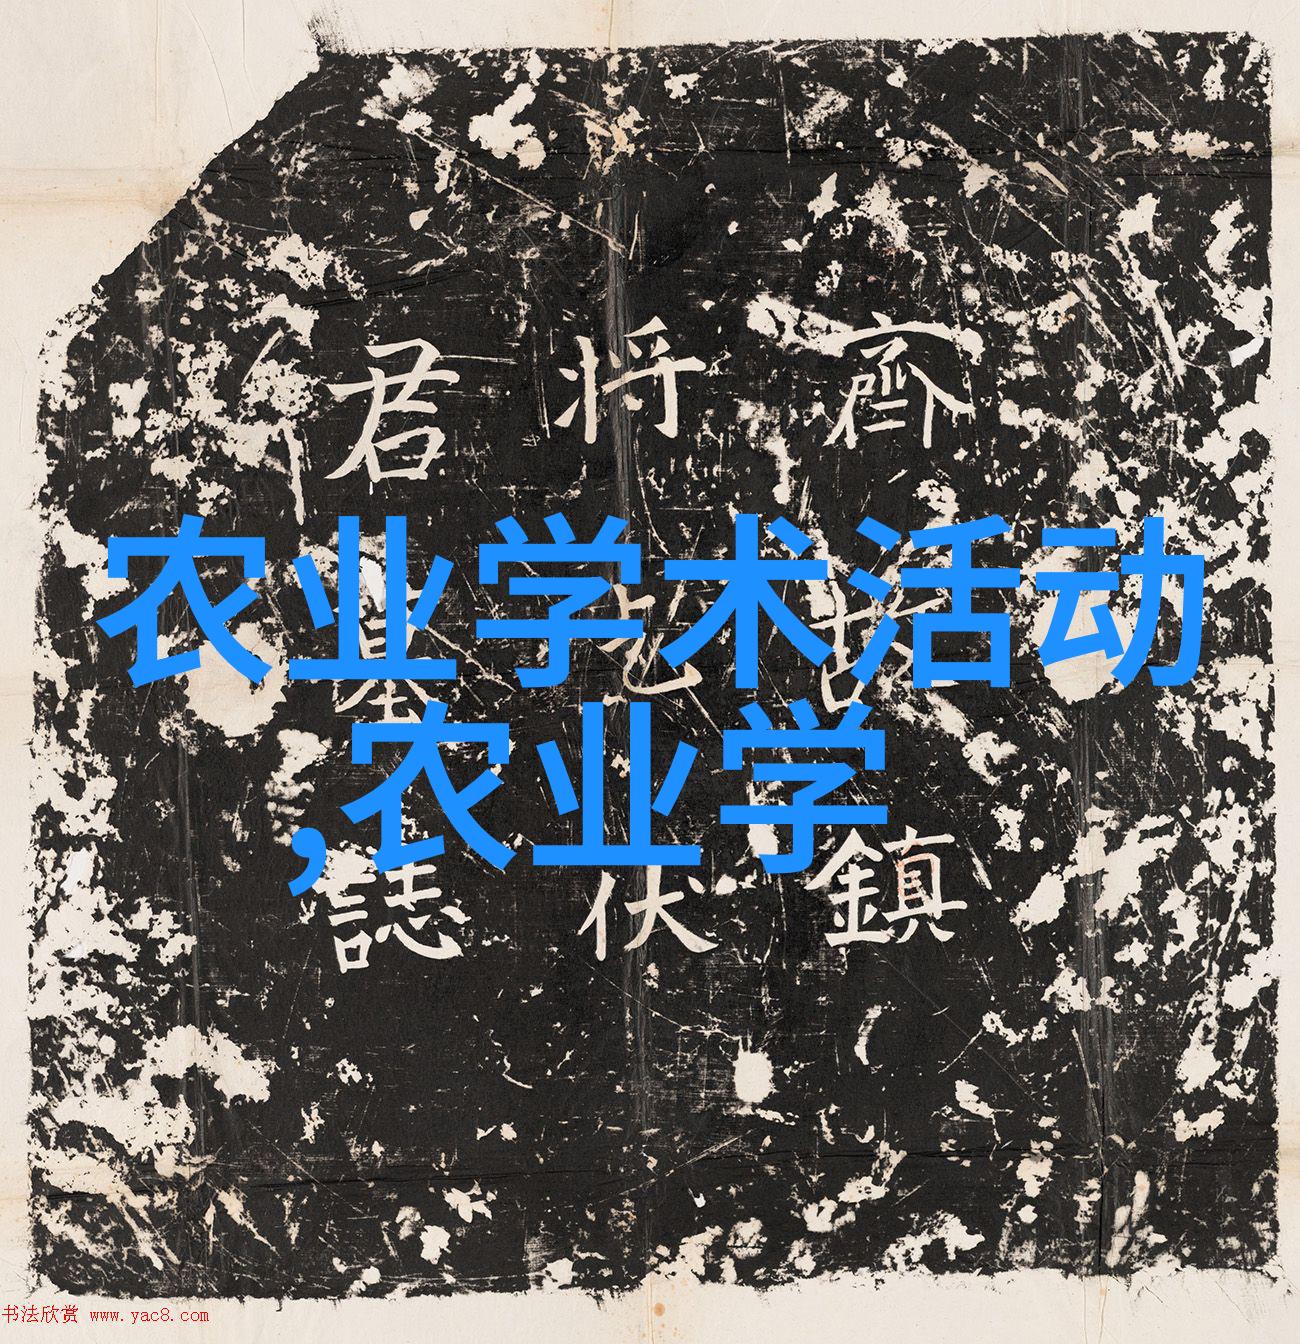 齊故鎮
将乞伏
君墓誌
农业学术活动
,农业学
书法欣赏 www.yac8.com